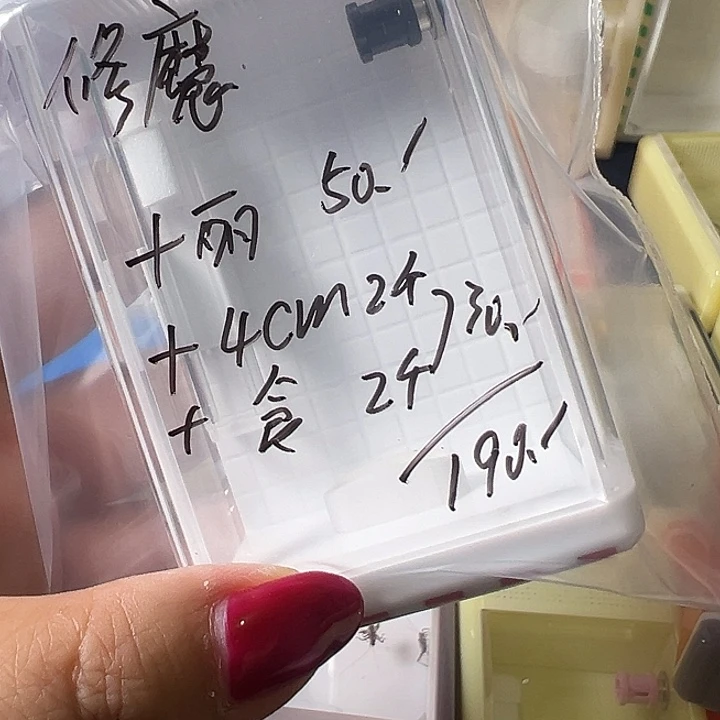 修魔
+丽 50.-
+4cm 2个
+食 2个 } 30.-
190.-